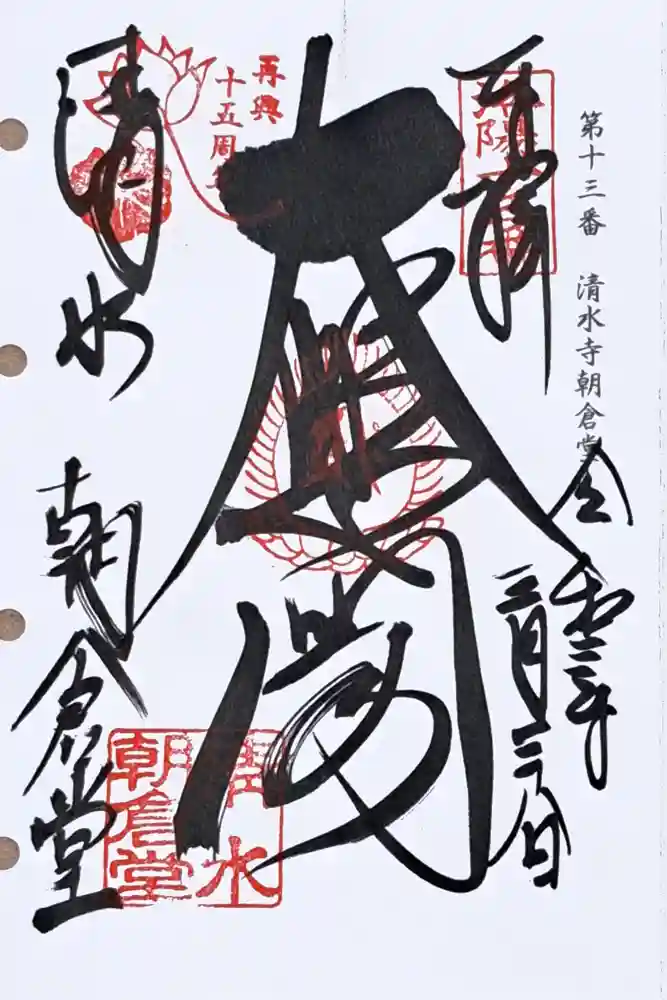 第十三番 清水寺朝倉堂
奉拝
洛陽
令和
三月
大悲閣
再興
十五周年
清水
朝倉堂
清水
朝倉堂